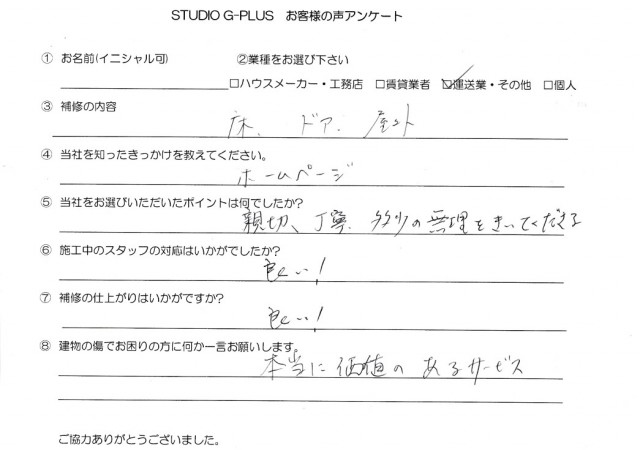 STUDIO G-PLUS お客様の声アンケート
① お名前(イニシャル可) ②業種をお選び下さい
□ハウスメーカー・工務店 □賃貸業者 ☑運送業・その他 □個人
③ 補修の内容
床、ドア、屋外
④ 当社を知ったきっかけを教えてください。
ホームページ
⑤ 当社をお選びいただいたポイントは何でしたか?
親切、丁寧 多少の無理をきいてくださる
⑥ 施工中のスタッフの対応はいかがでしたか?
良い!
⑦ 補修の仕上がりはいかがですか?
良い!
⑧ 建物の傷でお困りの方に何か一言お願いします。
本当に価値のあるサービス
ご協力ありがとうございました。